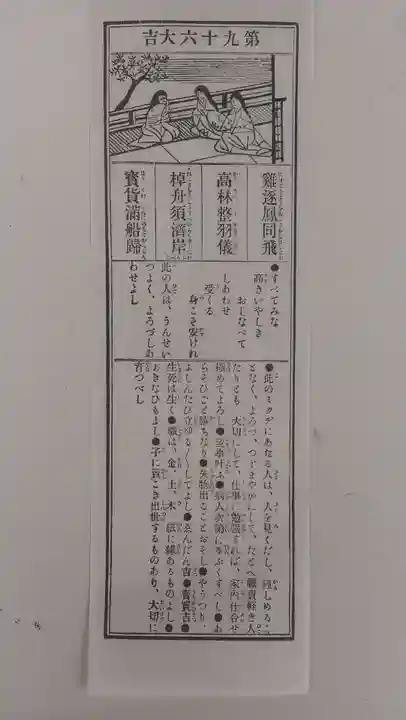 第九十六大吉
雞逐鳳同飛
高林整羽儀
棹舟須濟岸
寶貨滿船歸
●すべてみな
高きいやしき
おしなべて
しあわせ
受くる
身こそ安けれ
此の人は、うんせい
つよく、よろづしあ
わせよし
●此のミクヂにあたる人は、人を見くだし、
となく、よろづ、つゝまやかにして、たとへ職責軽き人
たりとも 大切にして、仕事に勉強すれば、家内仕合せ
極めてよろし●病人
らそひごと勝ちなり●失物出ることおそし●やうつり、
よしんたび立ゆる／＼してよし●ゑんだん吉●賣買吉●
生死は生く●職は、金、土、木 紙に縁あるものよし●
おきなひもよし●子に出世するものあり、大切に
育つべし